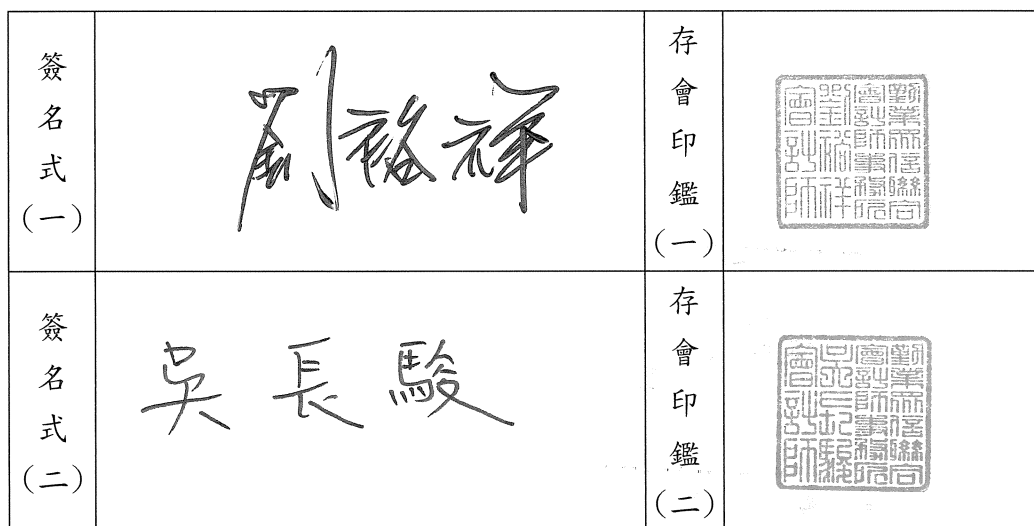 簽名式(一)
劉裕祥
存會印鑑(一)
勤業眾信聯合
會計師事務所
劉裕祥
會計師
簽名式(二)
吳長駿
存會印鑑(二)
勤業眾信聯合
會計師事務所
吳長駿
會計師